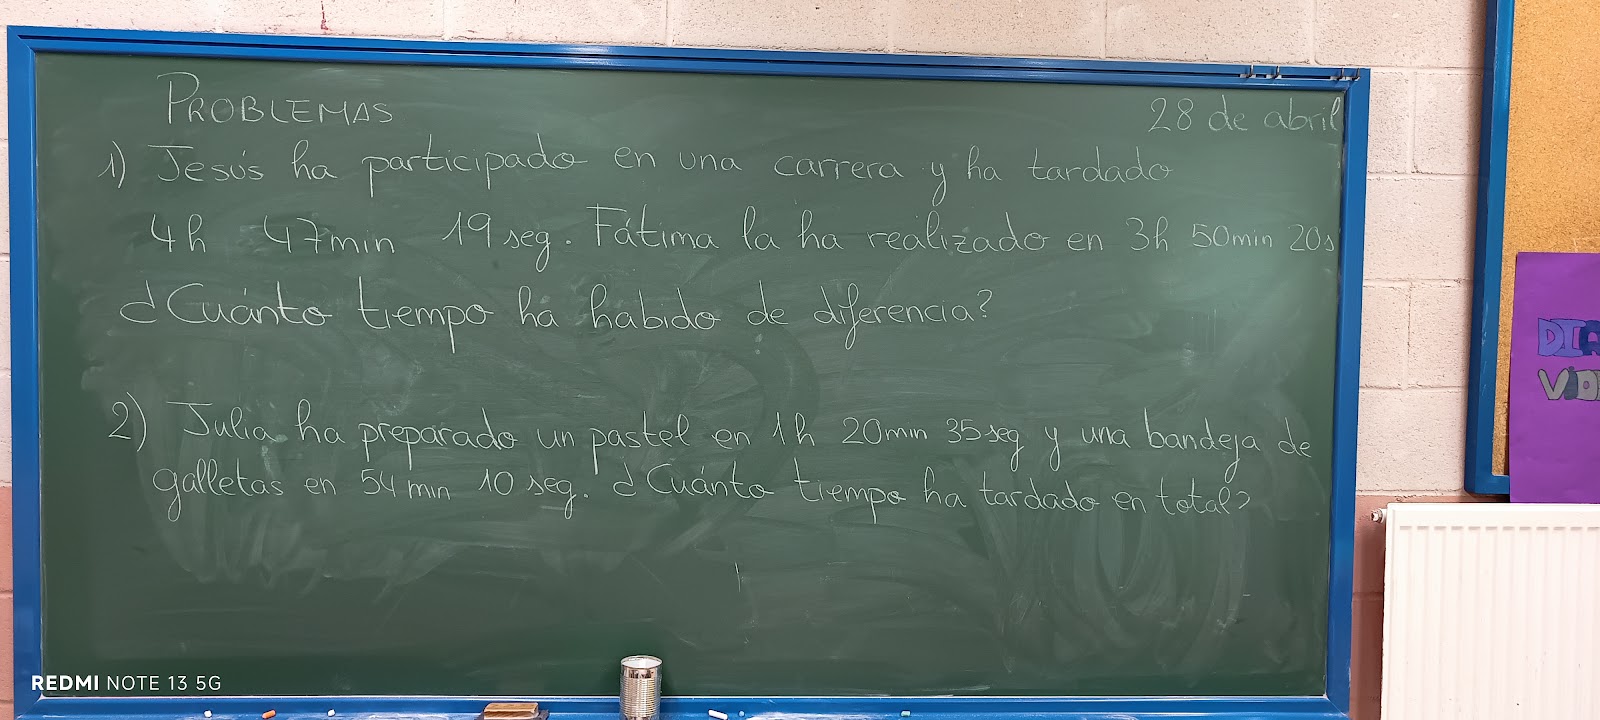 PROBLEMAS
28 de abril
1) Jesús ha participado en una carrera y ha tardado
4h 47min 19 seg. Fátima la ha realizado en 3h 50min 20s
¿Cuánto tiempo ha habido de diferencia?
2) Julia ha preparado un pastel en 1h 20min 35seg y una bandeja de
galletas en 54 min 10 seg. ¿Cuánto tiempo ha tardado en total?
REDMI NOTE 13 5G